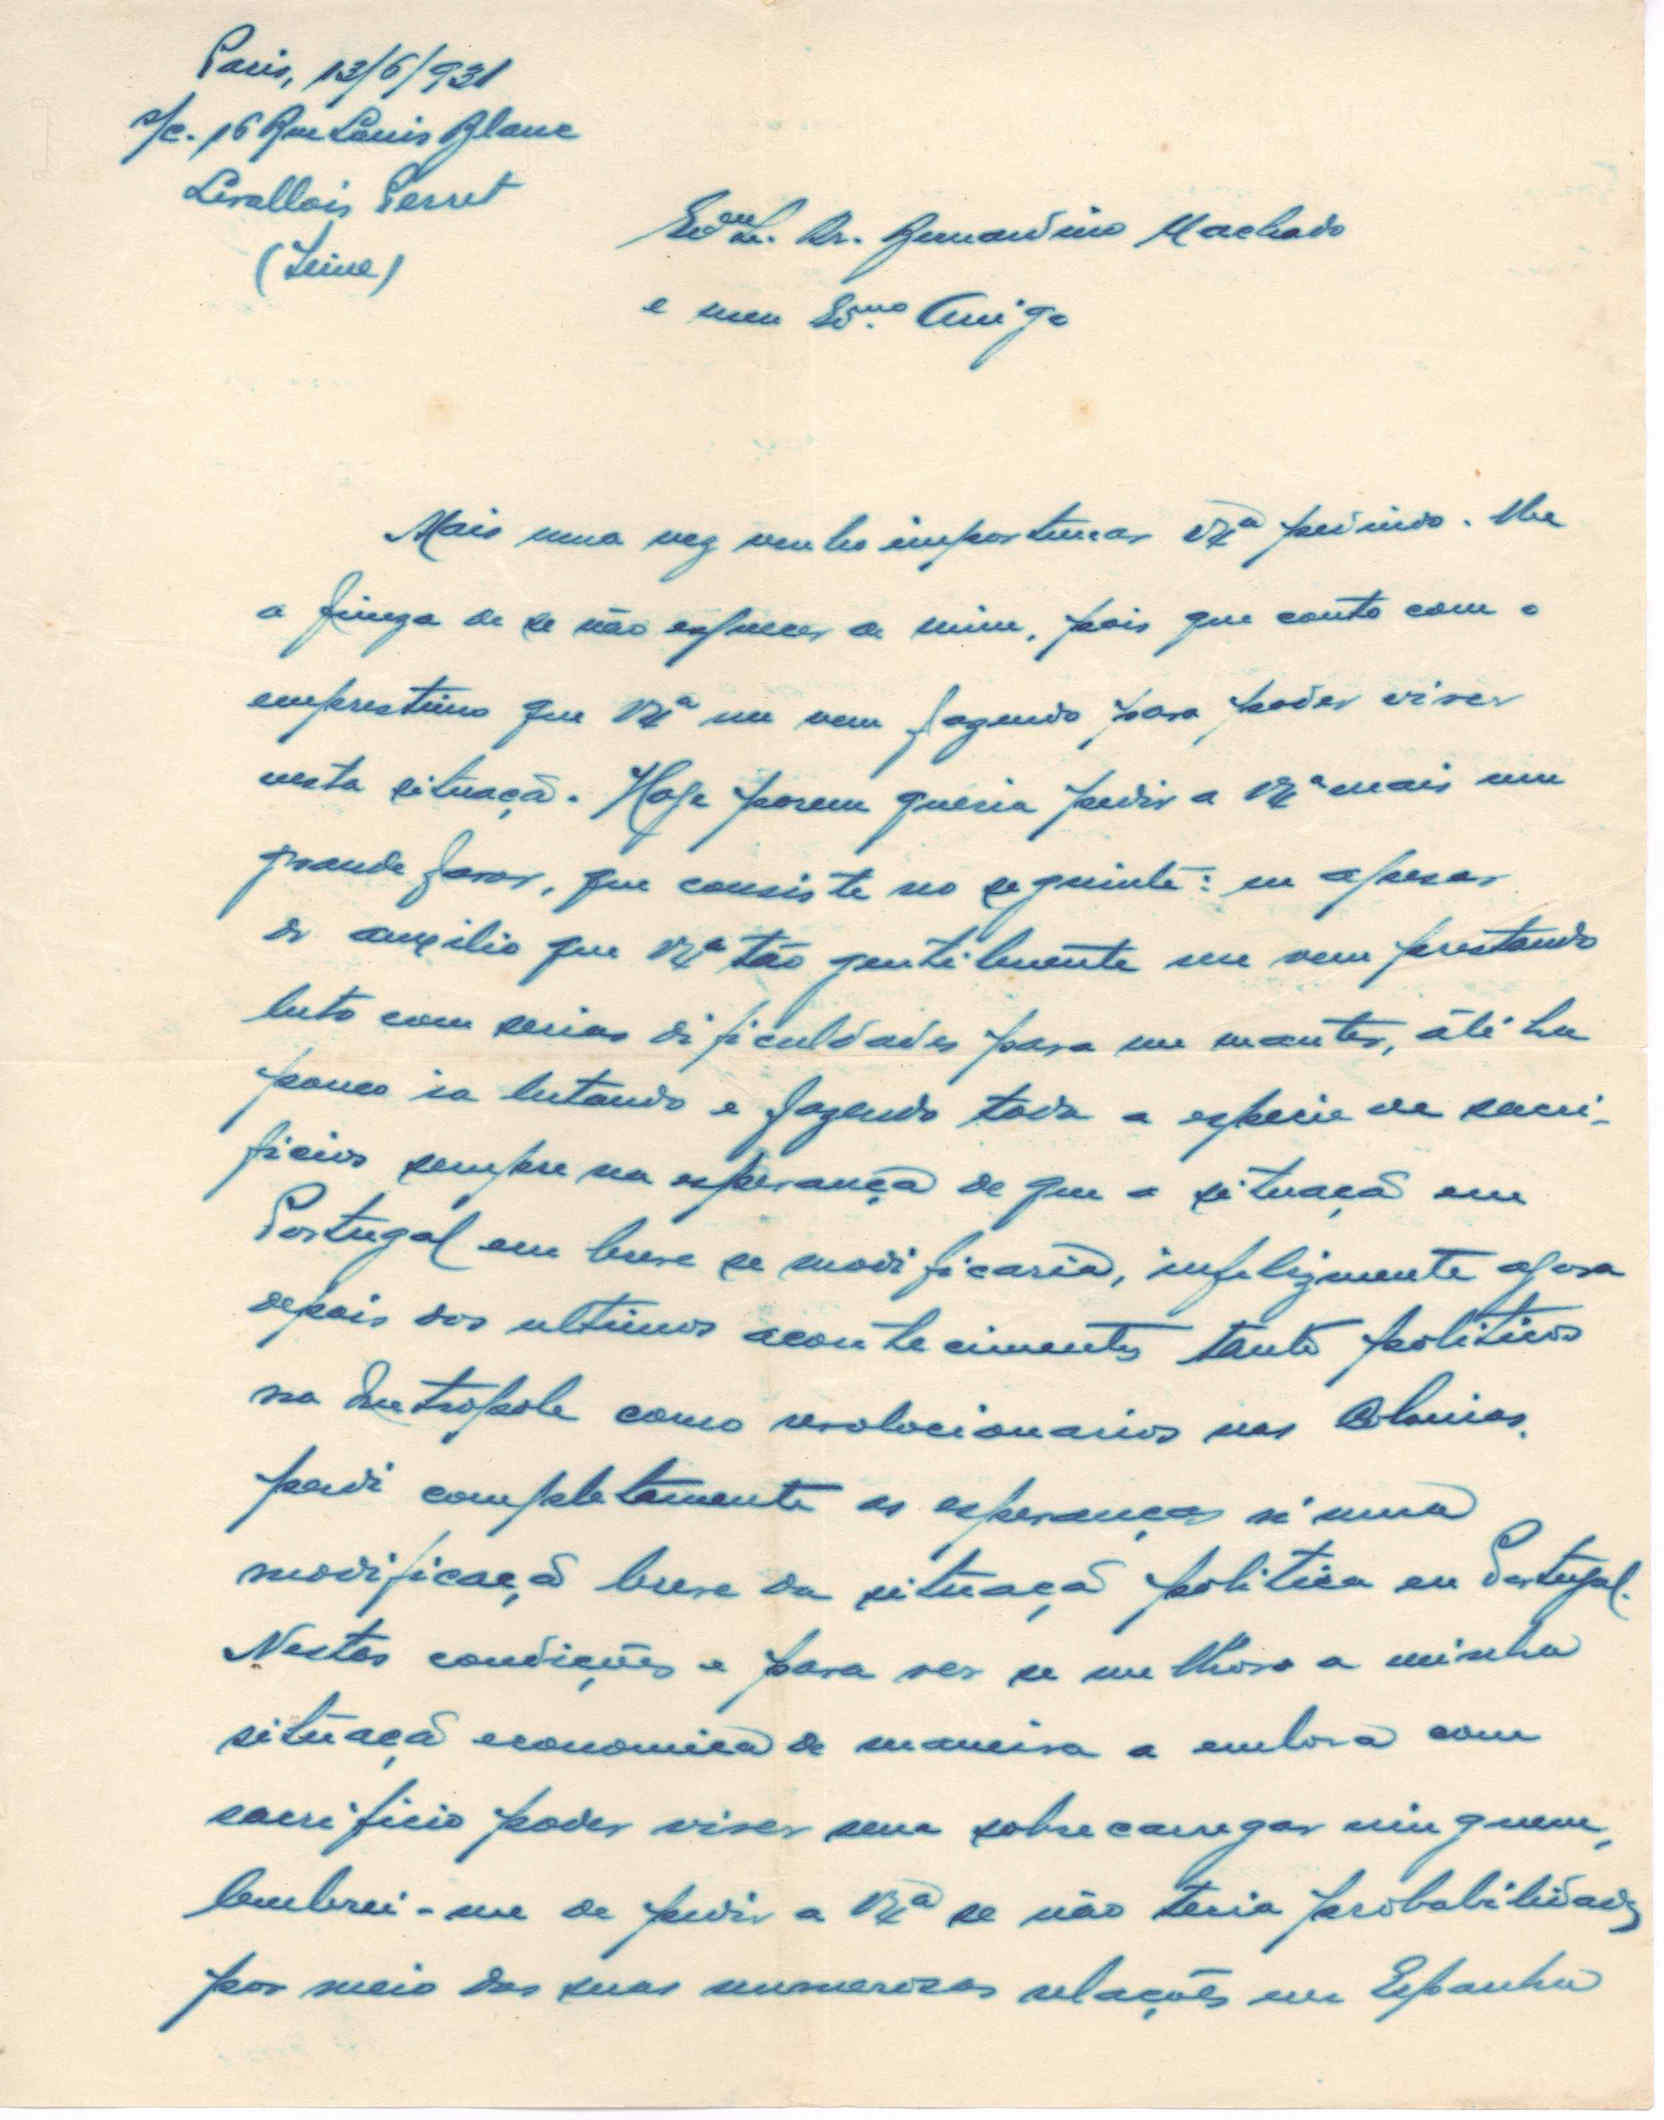 Paris, 13/6/931
s/c. 16 Rue Louis Blanc
Levallois Perret
(Seine)
Exmo. Sr. Dr. Bernardino Machado
e meu Exmo. Amigo
Mais uma vez venho importunar V.Exª pedindo-lhe
a fineza de se não esquecer de mim, pois que conto com o
emprestimo que V.Exª me vem fazendo para poder viver
nesta situaçã. Hoje porem queria pedir a V.Exª mais um
grande favor, que consiste no seguinte: eu apesar
do auxilio que V.Exª tão gentilmente me vem prestando
luto com serias dificuldades para me manter, áté ha
pouco ia lutando e fazendo toda a especie de sacri-
ficios sempre na esperança de que a situaçã em
Portugal em breve se modificaria, infelizmente agora
depois dos ultimos acontecimentos tanto politicos
na Metropole como revolocionarios nas Colonias,
perdi completamente as esperanças n'uma
modificaçã breve da situaçã politica em Portugal.
Nestas condições e para ver se melhoro a minha
situaçã economica de maneira a embora com
sacrificio poder viver sem sobrecarregar ninguem,
lembrei-me de pedir a V.Exª se não teria probabilidades
por meio das suas numerosas relações em Espanha